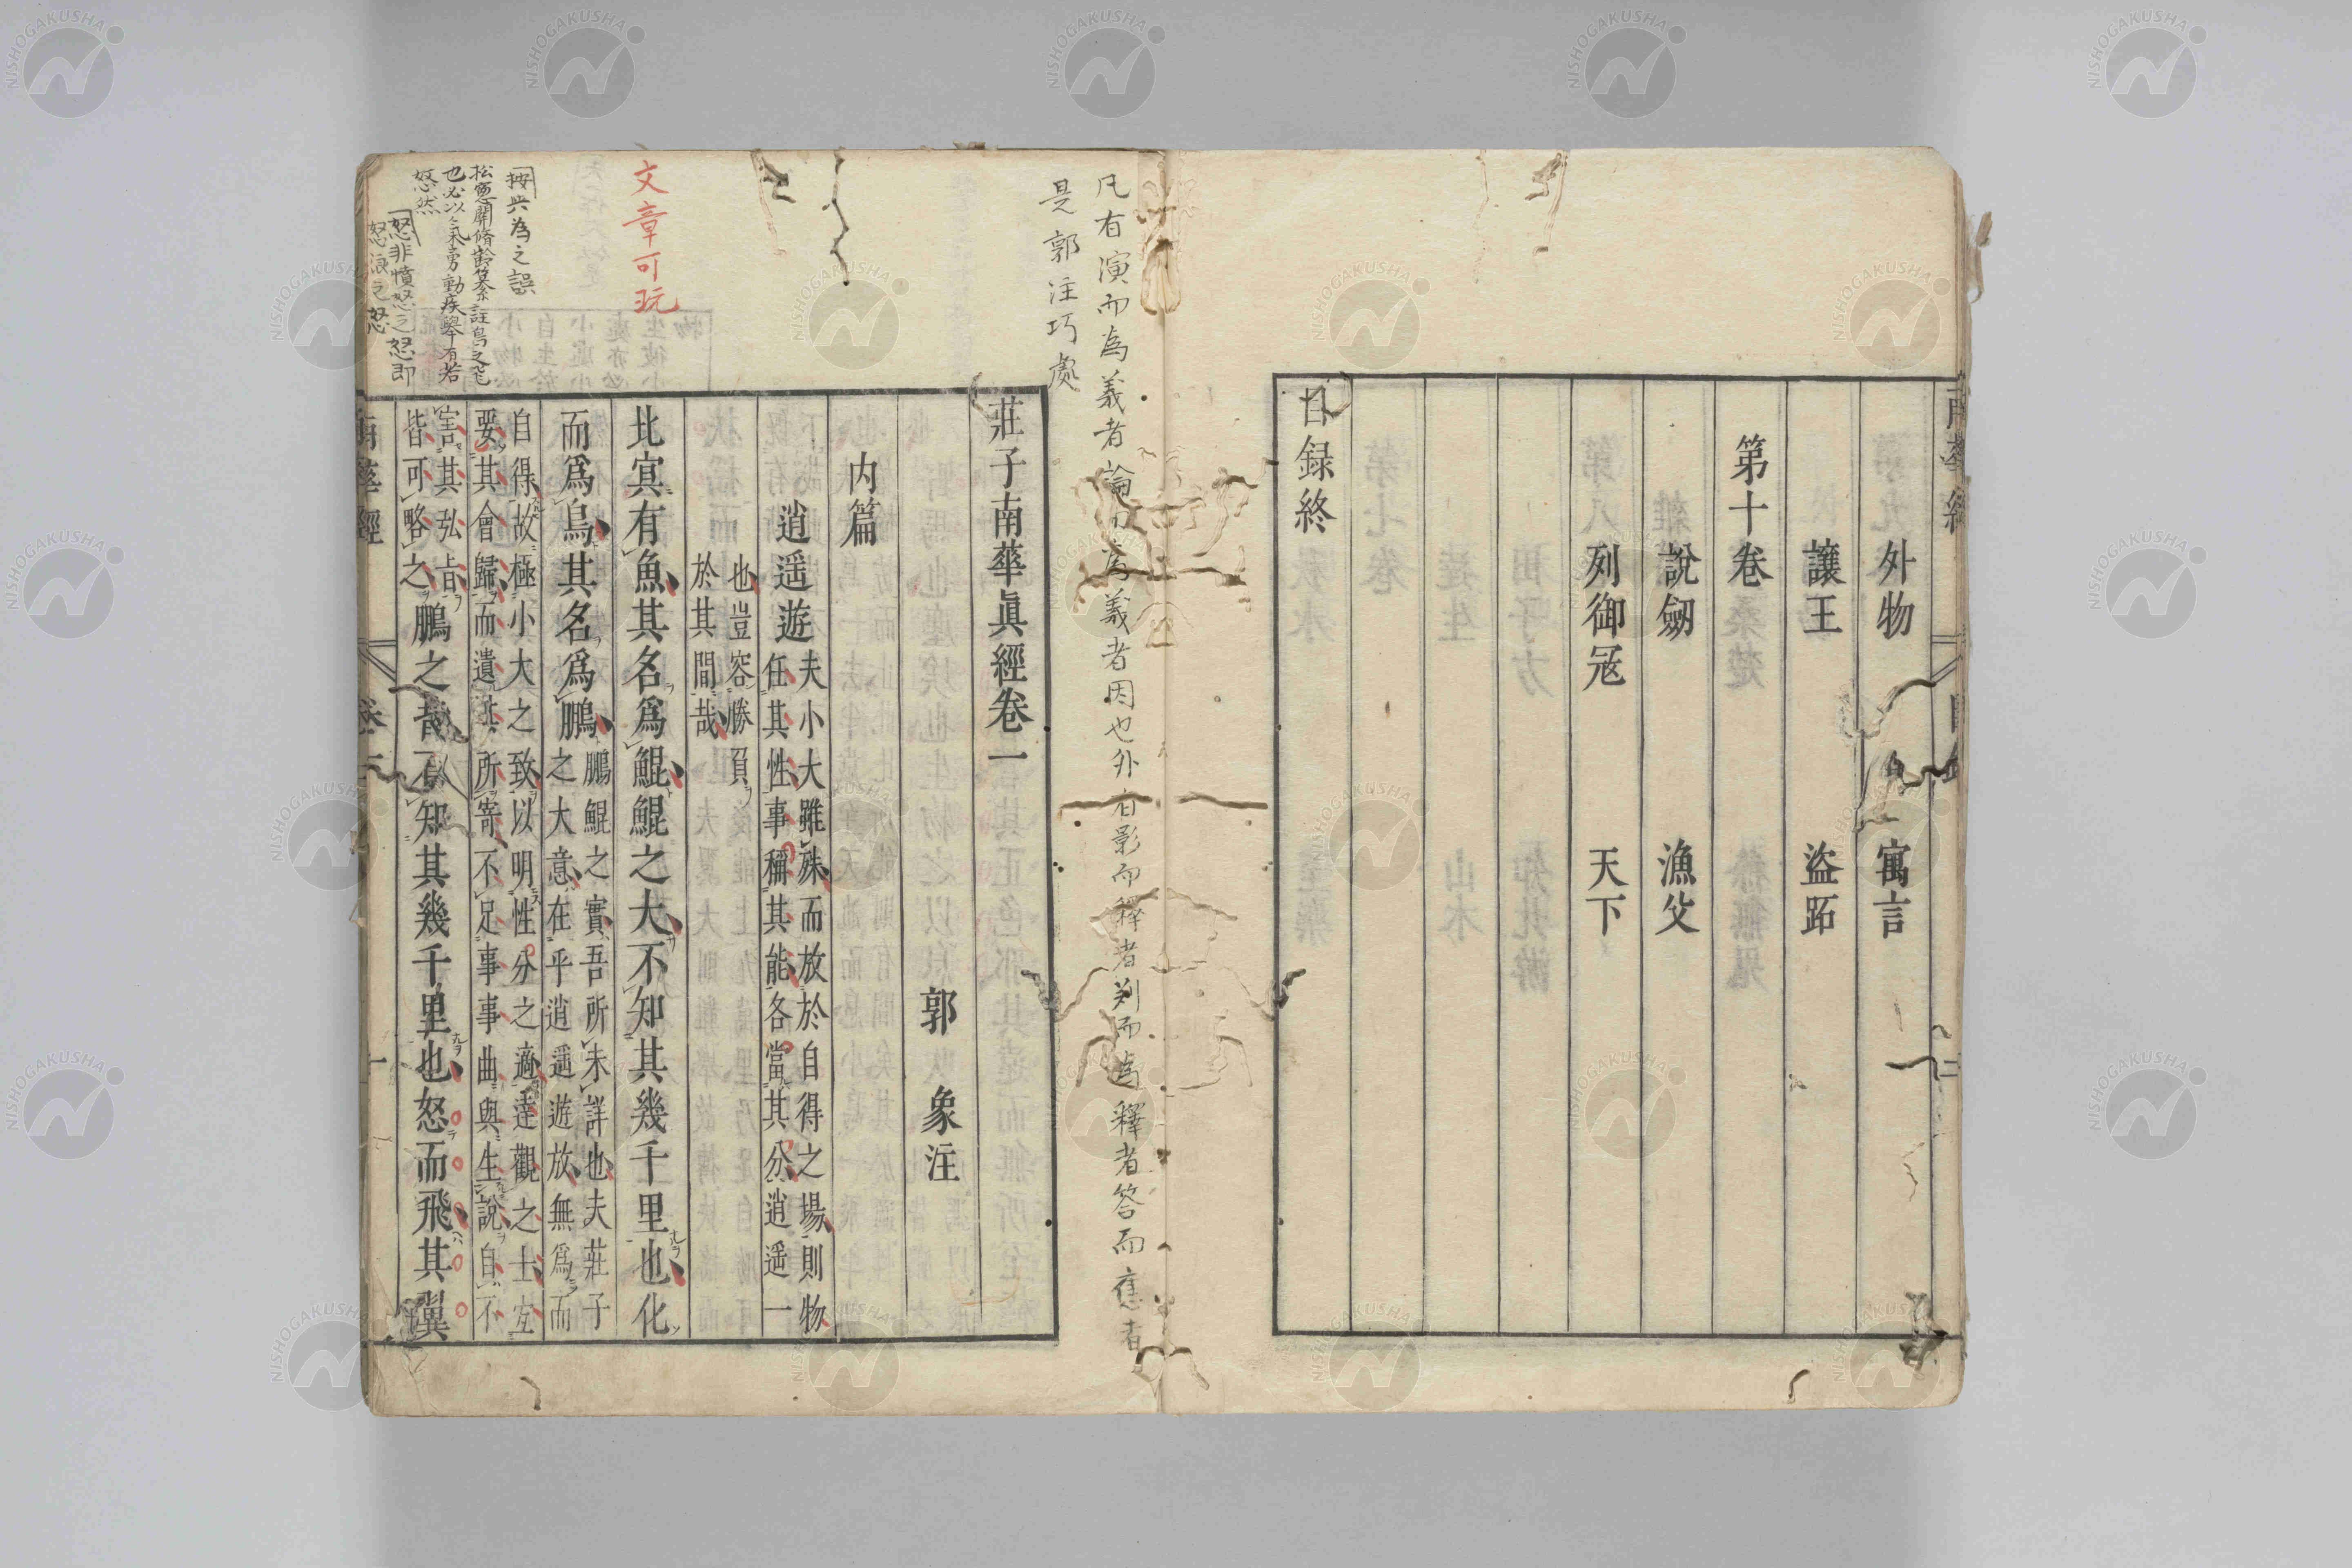 外物　寓言
讓王　盜跖
第十卷
說劒　漁父
列御冦　天下
目録終
凡有演而為義者論而為義者因也外有影而釋者判而為釋者答而應者
是郭注巧處
莊子南華眞經卷一
郭象注
内篇
逍遥遊
夫小大雖殊而放於自得之場則物
任其性事稱其能各當其分逍遥一
也豈容勝負
於其間哉
北㝠有魚其名爲鯤鯤之大不知其幾千里也化
而爲鳥其名爲鵬
鵬鯤之實吾所未詳也夫莊子
之大意在乎逍遥遊放無爲而
自得故極小大之致以明性分之適達觀之士宜
要其會歸而遺其所寄不足事事曲與生說自不
害其弘旨
皆可略之
鵬之背不知其幾千里也怒而飛其翼
文章可玩
按共為之誤
也必以氣勇動疾舉有若
怒然
怒非憤怒之怒即
怒浪之怒
南華經
卷一
一